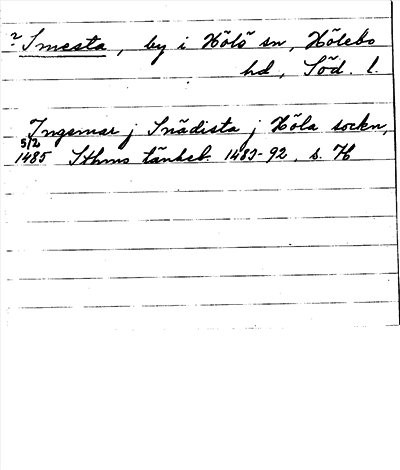 ? Smesta, by i Hölö sn, Hölebo
hd, Söd. l.
Ingemar j Snädista j Höla sockn,
5/2 1485 Sthms tänkeb. 1483-92, s. 74